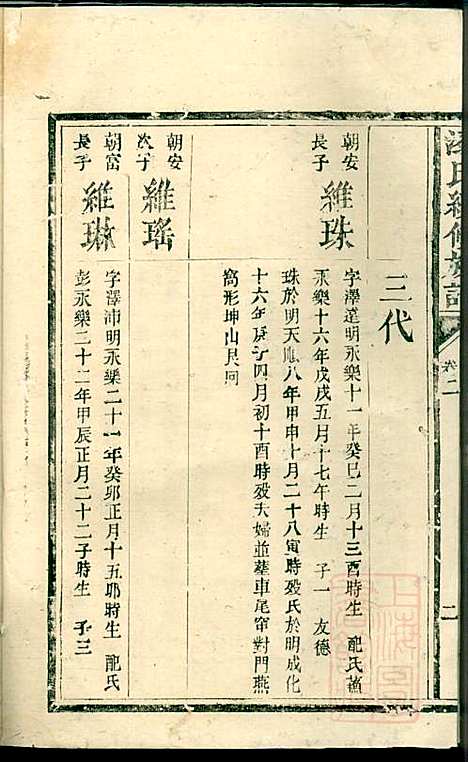 氏續修族譜
卷二
二
三代
朝安
長子
維珠
字澤遠明永樂十一年癸巳二月十三酉時生 配氏
永樂十六年戊戌五月十七午時生 子一 友德
珠於明天順八年甲申十月二十八寅時殁氏於明成化
十六年庚子四月初十酉時殁夫婦並葬車尾窜對門燕
窩形坤山艮向
朝安
次子
維瑶
朝富
長子
維琳
字澤沛明永樂二十一年癸卯正月十五卯時生 配氏
彭永樂二十二年甲辰正月二十二子時生 子三